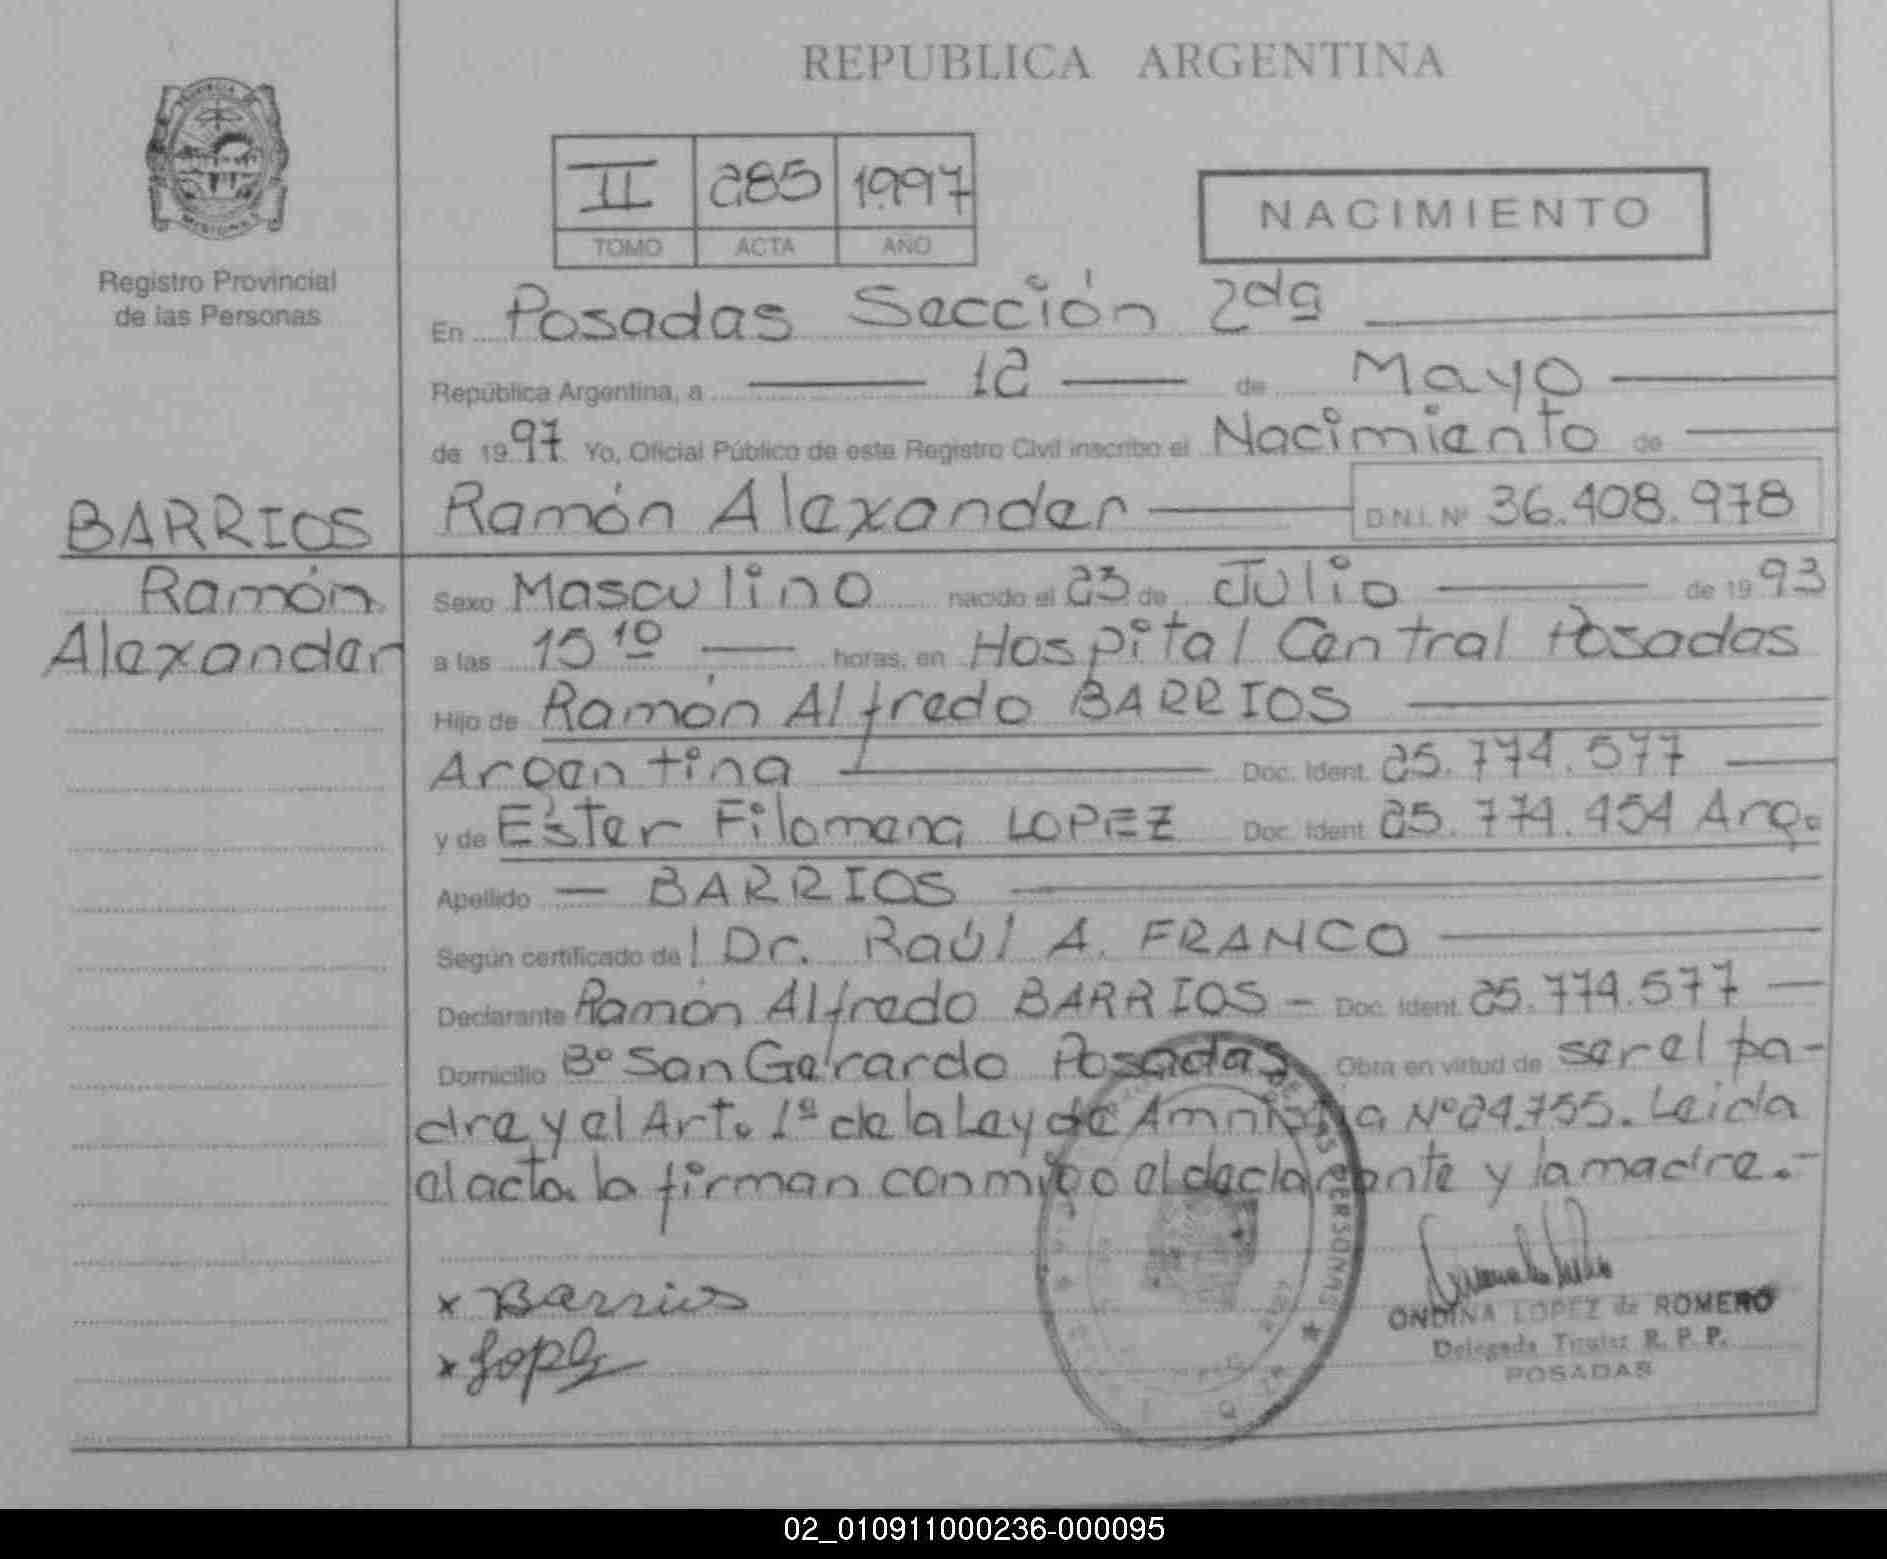 REPUBLICA ARGENTINA
II 285 1997
TOMO ACTA AÑO
NACIMIENTO
Registro Provincial
de las Personas
En Posadas Sección 2da
República Argentina, a 12 de Mayo
de 1997 Yo, Oficial Público de este Registro Civil inscribo el Nacimiento de
BARRIOS
Ramón Alexander D.N.I. Nº 36.408.978
Ramón
Alexander
Sexo Masculino nacido el 23 de Julio de 1993
a las 15 10 horas, en Hospital Central Posadas
Hijo de Ramón Alfredo BARRIOS
Argentina Doc. Ident. 25.774.577
y de Ester Filomena LOPEZ Doc. Ident. 25.774.454 Arg.
Apellido — BARRIOS
Según certificado del Dr. Raúl A. FRANCO
Declarante Ramón Alfredo BARRIOS - Doc. Ident. 25.774.577 —
Domicilio Bº San Gerardo Posadas Obra en virtud de ser el pa-
dre y el Art. 1º de la Ley de Amnistia Nº 24.755. Leida
el acta la firman conmigo el declarante y la madre.-
x Barrios
x Lopez
PERSONAS
ONDINA LOPEZ de ROMERO
Delegada Titular R. P. P.
POSADAS
02_010911000236-000095